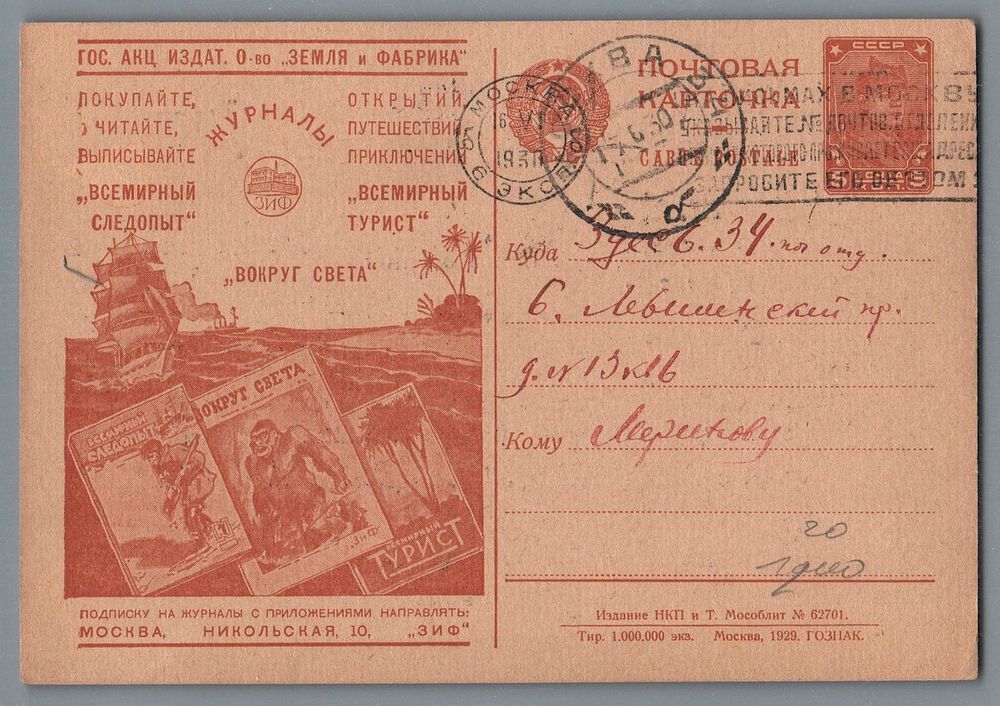 ГОС. АКЦ. ИЗДАТ. О-во „ЗЕМЛЯ и ФАБРИКА"
ПОКУПАЙТЕ,
ЧИТАЙТЕ,
ВЫПИСЫВАЙТЕ
ЖУРНАЛЫ
ЗИФ
ОТКРЫТИЙ
ПУТЕШЕСТВИЙ
ПРИКЛЮЧЕНИЙ
„ВСЕМИРНЫЙ
СЛЕДОПЫТ"
„ВСЕМИРНЫЙ
ТУРИСТ"
„ВОКРУГ СВЕТА"
ВСЕМИРНЫЙ
СЛЕДОПЫТ
ВОКРУГ СВЕТА
ЗИФ
ВСЕМИРНЫЙ
ТУРИСТ
ПОДПИСКУ НА ЖУРНАЛЫ С ПРИЛОЖЕНИЯМИ НАПРАВЛЯТЬ:
МОСКВА, НИКОЛЬСКАЯ, 10, „ЗИФ"
ПОЧТОВАЯ
КАРТОЧКА
CARTE POSTALE
СССР
МОСКВА
6 VI
1930
6 ЭКСП.
Куда Здесь. 34. по отд.
б. Лёвшинский пр.
д. № 13 к 16
Кому
20
Издание НКП и Т. Мособлит № 62701.
Тир. 1.000.000 экз. Москва, 1929. ГОЗНАК.